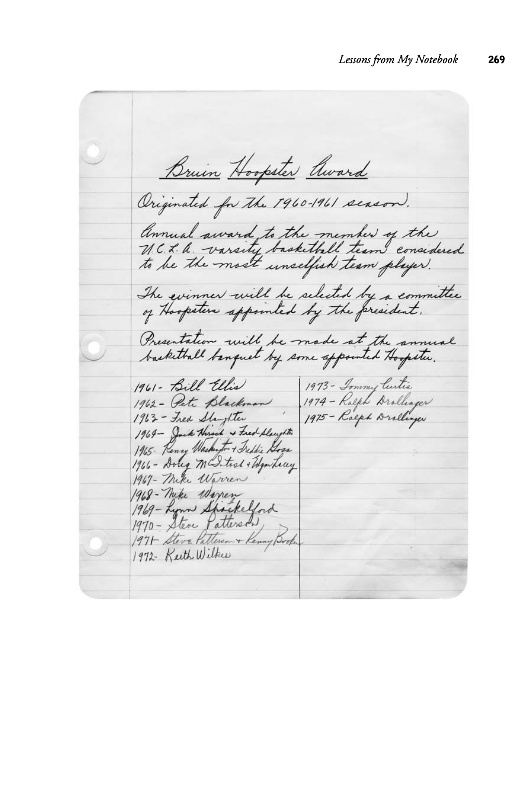 Lessons from My Notebook 269
Bruin Hoopster Award
Originated for the 1960-1961 season.
Annual award to the member of the
U.C.L.A. varsity basketball team considered
to be the most unselfish team player.
The winner will be selected by a committee
of Hoopsters appointed by the president.
Presentation will be made at the annual
basketball banquet by some appointed Hoopster.
1961- Bill Ellis
1962- Pete Blackman
1963- Fred Slaughter
1964- Jack Hirsch + Fred Slaughter
1965- Kenny Washington + Freddie Goss
1966- Doug McIntosh + Edgar Lacey
1967- Mike Warren
1968- Mike Warren
1969- Lynn Shackelford
1970- Steve Patterson
1971- Steve Patterson + Kenny Booker
1972- Keith Wilkes
1973- Tommy Curtis
1974- Ralph Drollinger
1975- Ralph Drollinger